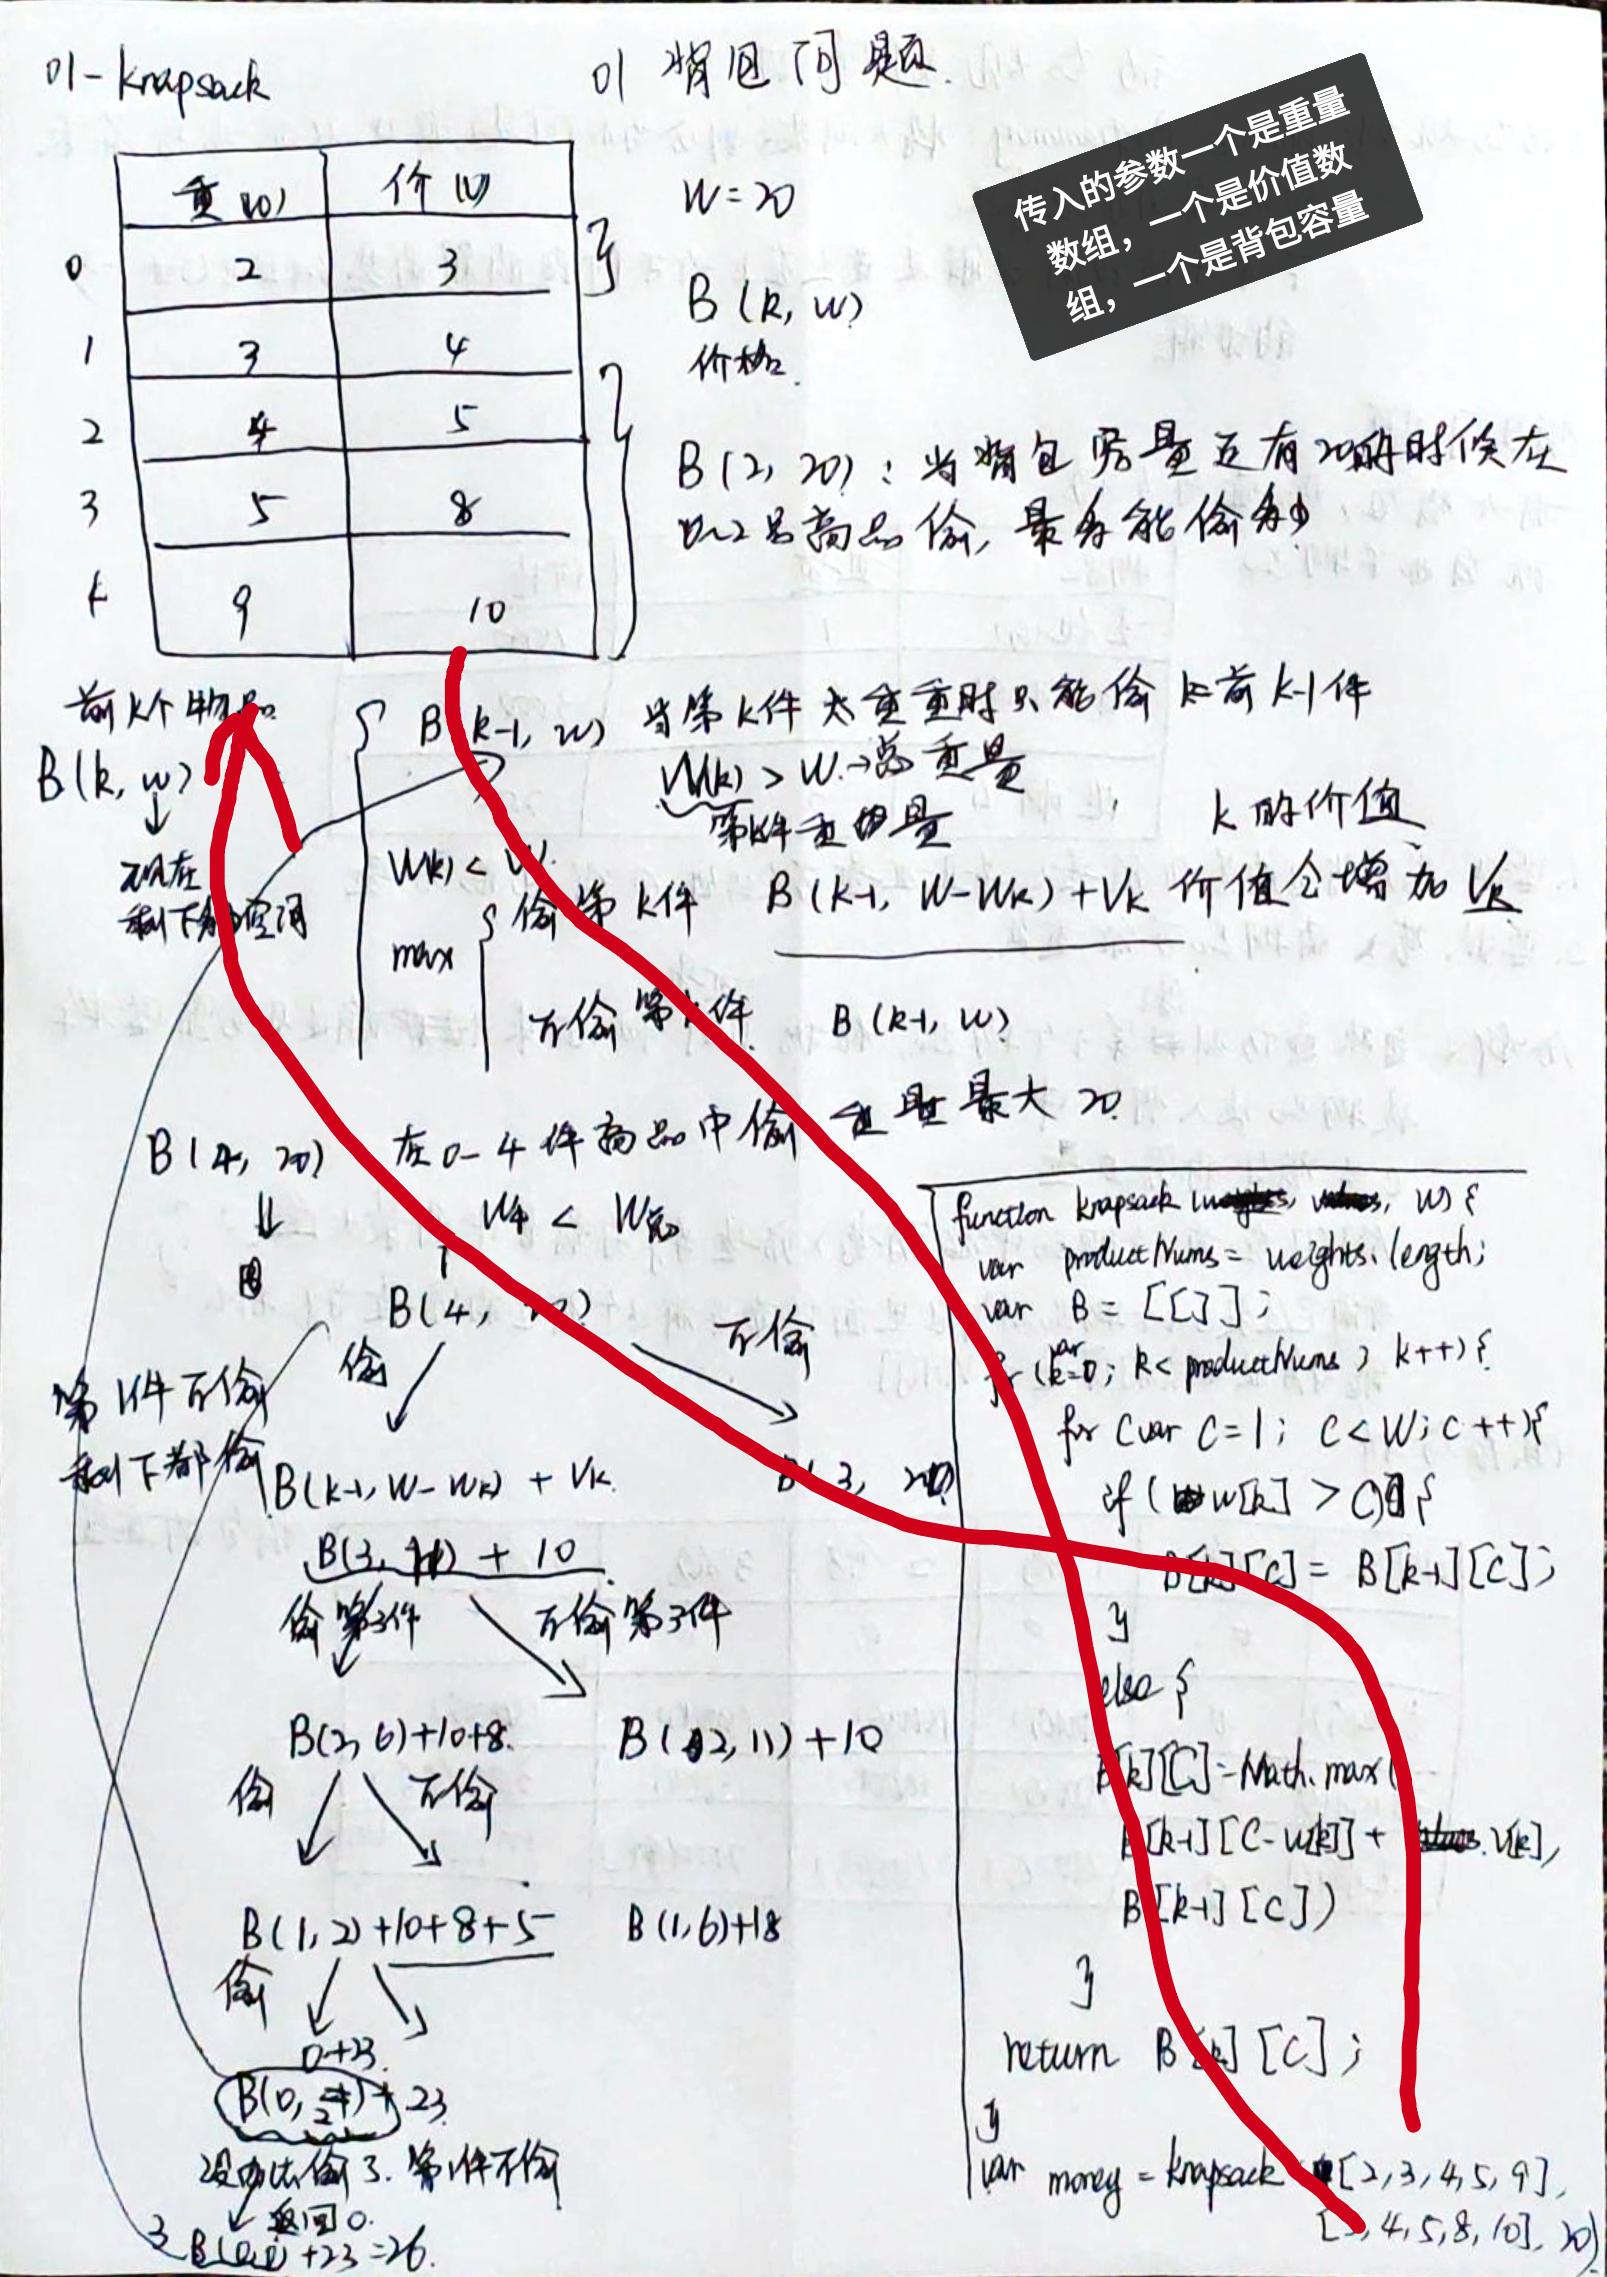 01-knapsack
01 背包问题.
传入的参数一个是重量
数组，一个是价值数
组，一个是背包容量
重(w) 价(v)
0 2 3
1 3 4
2 4 5
3 5 8
4 9 10
W=20
B(k, w)
价格.
B(2, 20): 当背包容量还有20的时候在
0~2号商品偷, 最多能偷多少
前k个物品
B(k, w)
现在
剩下的空间
B(k-1, w) 当第k件太重时只能偷 前k-1件
W(k) > W → 总重量
第k件重量
W(k) < W
max
偷第k件 B(k-1, W-Wk) + Vk 价值会增加 Vk
k的价值
不偷第k件. B(k-1, W)
B(4, 20) 在0-4件商品中偷 重量最大20.
W4 < W总
B(4, 20)
偷 不偷
第1件不偷
剩下都偷
B(k-1, W-Wk) + Vk. B(3, 20)
B(3, 11) + 10
偷第3件 不偷第3件
B(2, 6)+10+8. B(2, 11)+10
偷 不偷
B(1, 2)+10+8+5 B(1, 6)+18
偷
0+23.
B(0, 2)+23.
没办法偷了. 第1件不偷
返回0.
3
+23=26.
function knapsack (w, W) {
var productNums = weights.length;
var B = [[]];
for (var k=0; k< productNums; k++) {
for (var C=1; C<W; C++){
if (w[k] > C) {
B[k][C] = B[k-1][C];
}
else {
B[k][C]=Math.max(
B[k-1][C-w[k]] + v[k],
B[k-1][C])
}
return B[k][C];
}
var money = knapsack ([2,3,4,5,9],
[3,4,5,8,10], 20)